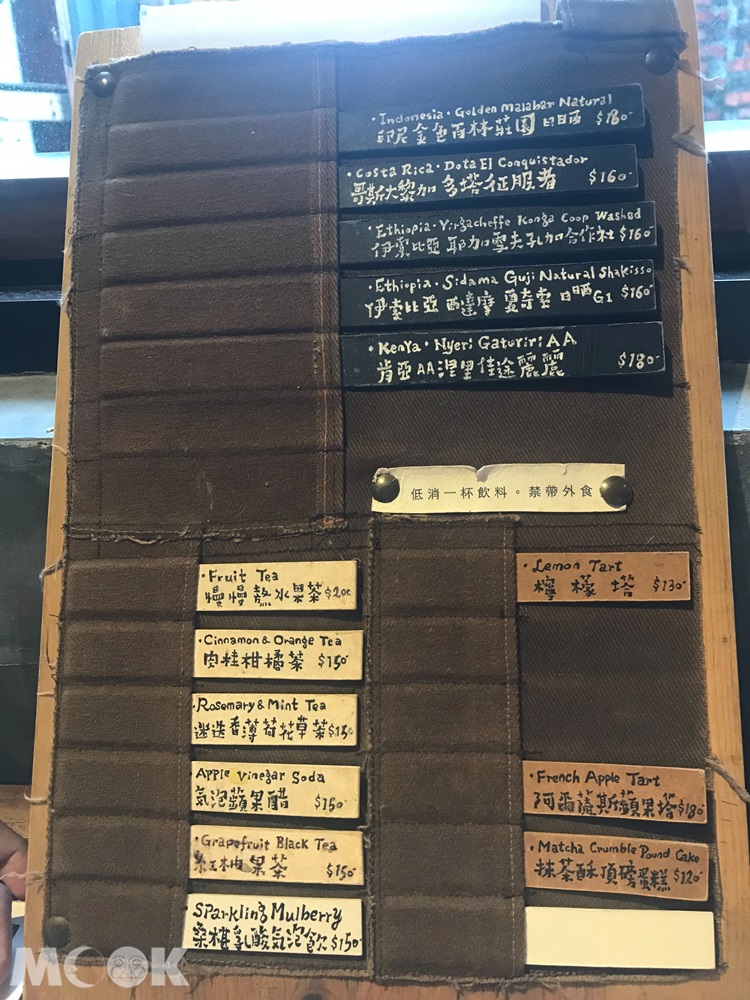 ·Indonesia·Golden Malabar Natural
印尼金色百林莊園 日晒 $180
·Costa Rica·Dota El Conquistador
哥斯大黎加 多塔征服者 $160
·Ethiopia·Yirgacheffe Konga Coop Washed
伊索比亞 耶加雪夫孔加合作社 $160
·Ethiopia·Sidama Guji Natural Shakisso
伊索比亞 西達摩 夏奇索 日晒G1 $160
·Kenya·Nyeri Gaturiri AA
肯亞AA涅里佳途麗麗 $180
低消一杯飲料。禁帶外食
·Fruit Tea
慢慢熬水果茶 $200
·Cinnamon & Orange Tea
肉桂柑橘茶 $150
·Rosemary & Mint Tea
迷迭香薄荷花草茶 $150
·Apple Vinegar Soda
氣泡蘋果醋 $150
·Grapefruit Black Tea
紅柚果茶 $150
Sparkling Mulberry
桑椹乳酸氣泡飲 $150
·Lemon Tart
檸檬塔 $130
·French Apple Tart
阿爾薩斯蘋果塔 $180
·Matcha Crumble Pound Cake
抹茶酥頂磅蛋糕 $120
MOOK